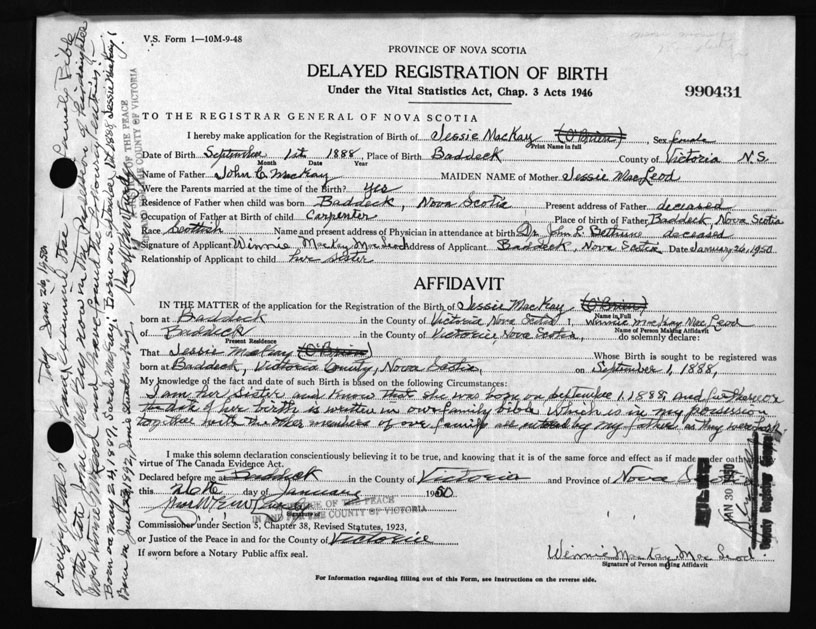 V.S. Form 1—10M-9-48
PROVINCE OF NOVA SCOTIA
DELAYED REGISTRATION OF BIRTH
Under the Vital Statistics Act, Chap. 3 Acts 1946
990431
TO THE REGISTRAR GENERAL OF NOVA SCOTIA
I hereby make application for the Registration of Birth of Jessie MacKay (O'Brien) Sex female
Print Name in full
Date of Birth September 1st 1888 Place of Birth Baddeck County of Victoria N.S.
Month Date Year
Name of Father John C. MacKay MAIDEN NAME of Mother Jessie MacLeod
Were the Parents married at the time of the Birth? yes
Residence of Father when child was born Baddeck, Nova Scotia Present address of Father deceased
Occupation of Father at Birth of child Carpenter Place of birth of Father Baddeck, Nova Scotia
Race Scottish Name and present address of Physician in attendance at birth Dr. John L. Bethune deceased
Signature of Applicant Winnie MacKay MacLeod Address of Applicant Baddeck, Nova Scotia Date January 26, 1950
Relationship of Applicant to child her sister
AFFIDAVIT
IN THE MATTER of the application for the Registration of the Birth of Jessie MacKay (O'Brien)
Name in Full
born at Baddeck in the County of Victoria Nova Scotia I, Winnie MacKay MacLeod
Name of Person Making Affidavit
of Baddeck in the County of Victoria Nova Scotia, do solemnly declare:
Present Residence
That Jessie MacKay (O'Brien) Whose Birth is sought to be registered was
born at Baddeck, Victoria County, Nova Scotia, on September 1, 1888,
My knowledge of the fact and date of such Birth is based on the following Circumstances:
I am her sister and know that she was born on September 1, 1888, and
of her birth is written in our family bible which is in my possession
with the other members of our family all by my father as they were born.
I make this solemn declaration conscientiously believing it to be true, and knowing that it is of the same force and effect as if made under oath
virtue of The Canada Evidence Act.
Declared before me at Baddeck in the County of Victoria and Province of Nova Scotia
this 26th day of January 1950
JUSTICE OF THE PEACE
IN AND FOR THE COUNTY OF VICTORIA
Signature of
Commissioner under Section 5, Chapter 38, Revised Statutes, 1923,
or Justice of the Peace in and for County of Victoria
If sworn before a Notary Public affix seal.
Winnie MacKay MacLeod
Signature of Person making Affidavit
For Information regarding filling out of this Form, see instructions on the reverse side.
JAN 30 1950
I certify that I have examined the Family Bible
of the late John MacKay now in the possession of his daughter
Born on May 24, 1887, Sarah MacKay; Born on September 1st 1888 Jessie MacKay;
OF THE PEACE
COUNTY OF VICTORIA